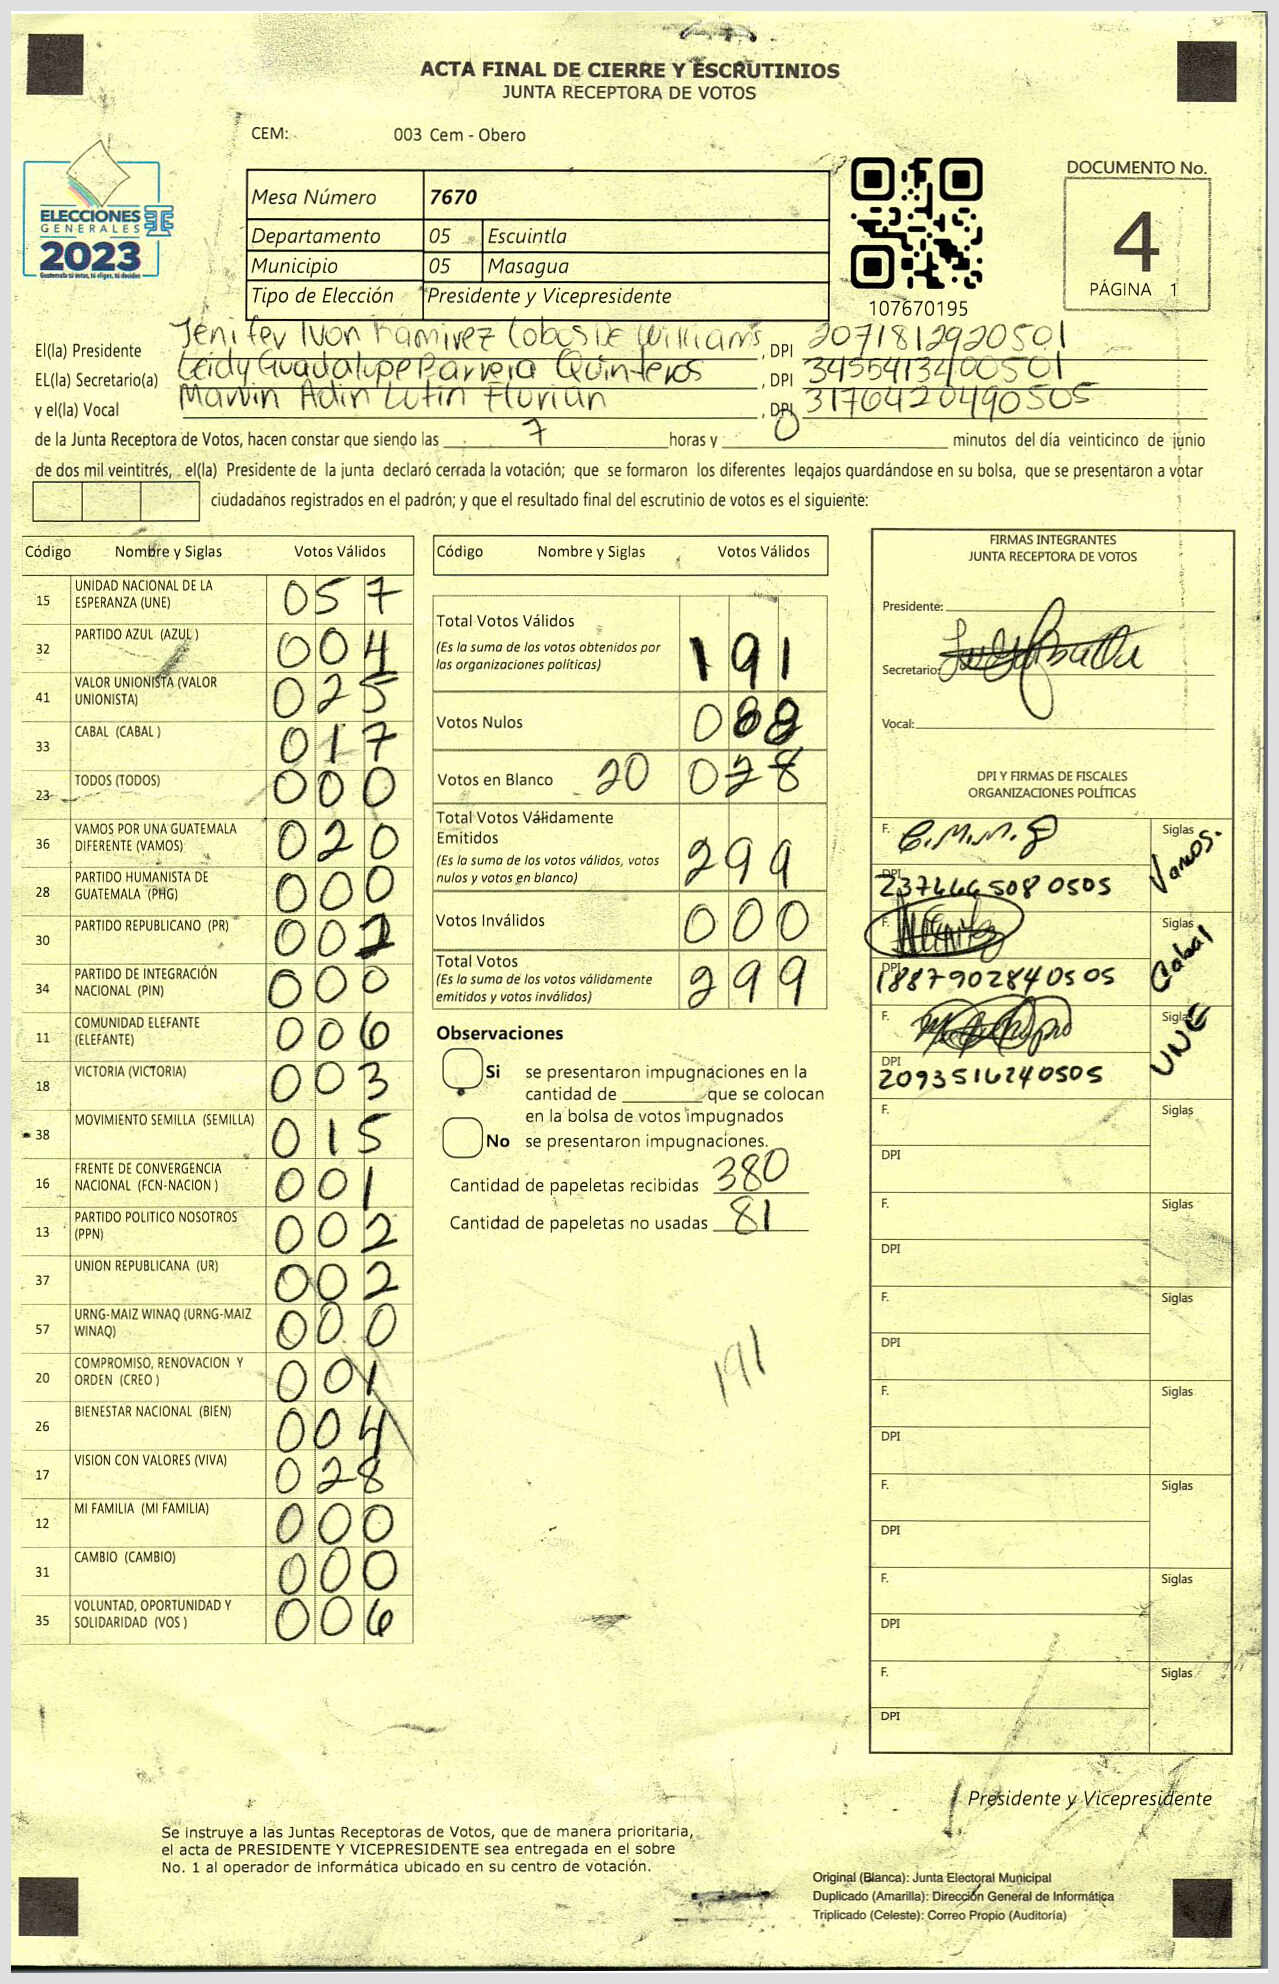 ACTA FINAL DE CIERRE Y ESCRUTINIOS
JUNTA RECEPTORA DE VOTOS
CEM: 003 Cem - Obero
DOCUMENTO No.
4
PÁGINA 1
ELECCIONES
GENERALES
2023
Guatemala tú votas, tú eliges, tú decides
Mesa Número 7670
Departamento 05 Escuintla
Municipio 05 Masagua
Tipo de Elección Presidente y Vicepresidente
107670195
El(la) Presidente Jenifer Ivon Ramirez Cobos De Williams, DPI 2071812920501
EL(la) Secretario(a) Leidy Guadalupe Barrera Quinteros, DPI 3455413400501
y el(la) Vocal Marvin Adin Lutin Florian, DPI 3176420490505
de la Junta Receptora de Votos, hacen constar que siendo las 7 horas y 0 minutos del día veinticinco de junio
de dos mil veintitrés, el(la) Presidente de la junta declaró cerrada la votación; que se formaron los diferentes legajos guardándose en su bolsa, que se presentaron a votar
ciudadanos registrados en el padrón; y que el resultado final del escrutinio de votos es el siguiente:
Código Nombre y Siglas Votos Válidos
15 UNIDAD NACIONAL DE LA
ESPERANZA (UNE) 057
32 PARTIDO AZUL (AZUL ) 004
41 VALOR UNIONISTA (VALOR
UNIONISTA) 025
33 CABAL (CABAL ) 017
23 TODOS (TODOS) 000
36 VAMOS POR UNA GUATEMALA
DIFERENTE (VAMOS) 020
28 PARTIDO HUMANISTA DE
GUATEMALA (PHG) 000
30 PARTIDO REPUBLICANO (PR) 00
34 PARTIDO DE INTEGRACIÓN
NACIONAL (PIN) 000
11 COMUNIDAD ELEFANTE
(ELEFANTE) 006
18 VICTORIA (VICTORIA) 003
38 MOVIMIENTO SEMILLA (SEMILLA) 015
16 FRENTE DE CONVERGENCIA
NACIONAL (FCN-NACION ) 001
13 PARTIDO POLITICO NOSOTROS
(PPN) 002
37 UNION REPUBLICANA (UR) 002
57 URNG-MAIZ WINAQ (URNG-MAIZ
WINAQ) 000
20 COMPROMISO, RENOVACION Y
ORDEN (CREO ) 001
26 BIENESTAR NACIONAL (BIEN) 004
17 VISION CON VALORES (VIVA) 028
12 MI FAMILIA (MI FAMILIA) 000
31 CAMBIO (CAMBIO) 000
35 VOLUNTAD, OPORTUNIDAD Y
SOLIDARIDAD (VOS ) 006
Código Nombre y Siglas Votos Válidos
Total Votos Válidos
(Es la suma de los votos obtenidos por
las organizaciones políticas) 191
Votos Nulos 088
Votos en Blanco 20 028
Total Votos Válidamente
Emitidos
(Es la suma de los votos válidos, votos
nulos y votos en blanco) 299
Votos Inválidos 000
Total Votos
(Es la suma de los votos válidamente
emitidos y votos inválidos) 299
Observaciones
Si se presentaron impugnaciones en la
cantidad de ________ que se colocan
en la bolsa de votos impugnados
No se presentaron impugnaciones.
Cantidad de papeletas recibidas 380
Cantidad de papeletas no usadas 81
191
FIRMAS INTEGRANTES
JUNTA RECEPTORA DE VOTOS
Presidente:
Secretario:
Vocal:
DPI Y FIRMAS DE FISCALES
ORGANIZACIONES POLÍTICAS
F. Siglas Vamos.
DPI 2374645080505
F. Siglas Cabal
DPI 1887902840505
F. Siglas UNE
DPI 2093516240505
F. Siglas
DPI
F. Siglas
DPI
F. Siglas
DPI
F. Siglas
DPI
F. Siglas
DPI
F. Siglas
DPI
F. Siglas
DPI
Presidente y Vicepresidente
Se instruye a las Juntas Receptoras de Votos, que de manera prioritaria,
el acta de PRESIDENTE Y VICEPRESIDENTE sea entregada en el sobre
No. 1 al operador de informática ubicado en su centro de votación.
Original (Blanca): Junta Electoral Municipal
Duplicado (Amarilla): Dirección General de Informática
Triplicado (Celeste): Correo Propio (Auditoría)